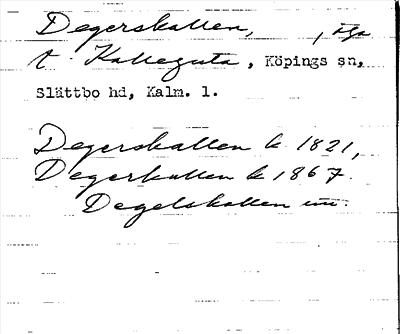 Degerskallen,
t. Kalleguta, Köpings sn,
Slättbo hd, Kalm. l.
Degerskallen k 1821,
Degerkallen k 1867.
Degelskallen